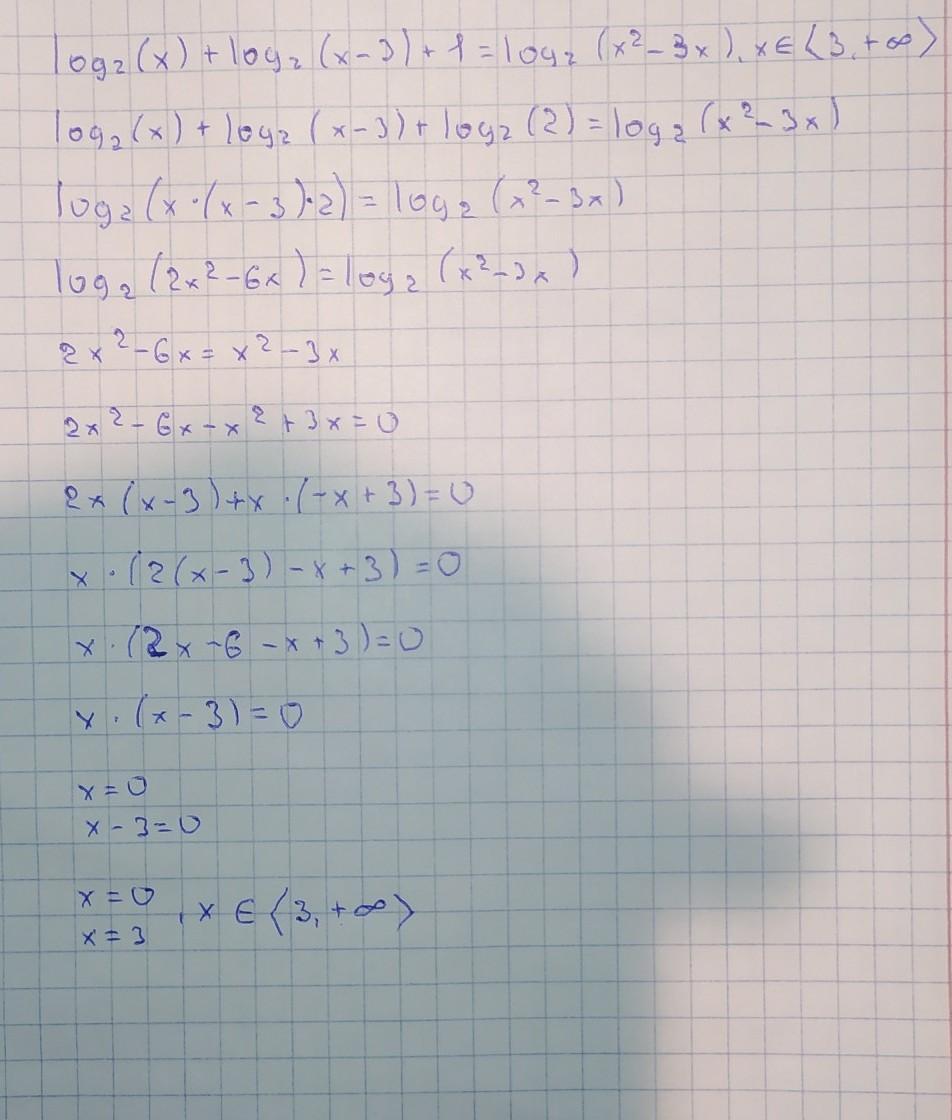 log₂(x) + log₂(x-3) + 1 = log₂(x²-3x), x∈⟨3,+∞⟩
log₂(x) + log₂(x-3) + log₂(2) = log₂(x²-3x)
log₂(x·(x-3)·2) = log₂(x²-3x)
log₂(2x²-6x) = log₂(x²-3x)
2x²-6x = x²-3x
2x²-6x-x²+3x=0
2x(x-3)+x·(-x+3)=0
x·(2(x-3)-x+3)=0
x·(2x-6-x+3)=0
x·(x-3)=0
x=0
x-3=0
x=0
x=3, x∈⟨3,+∞⟩